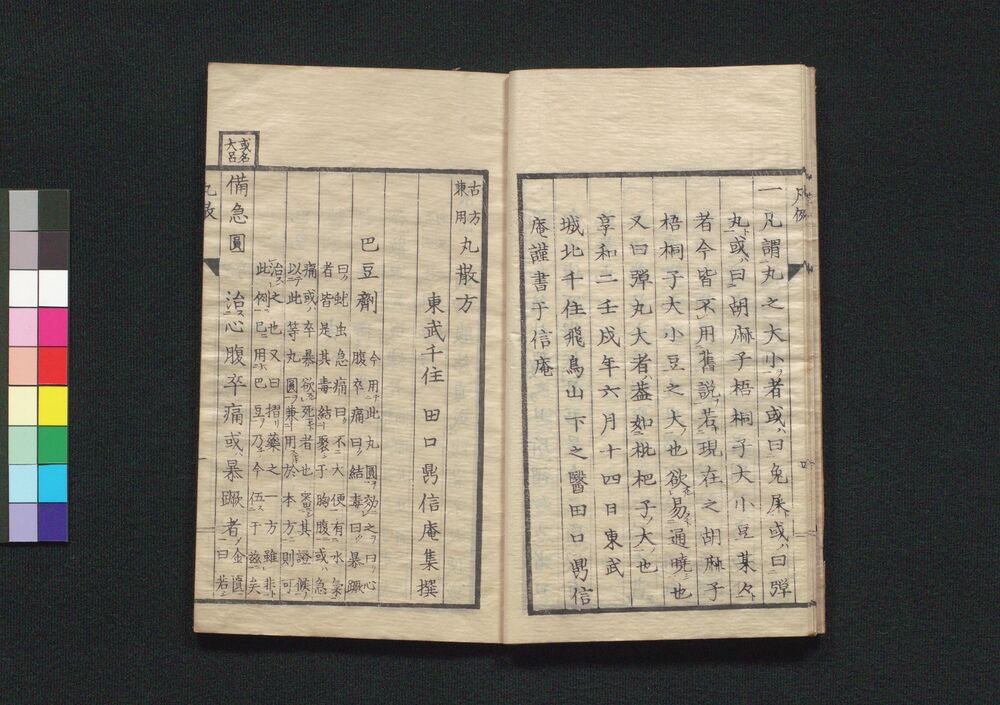 凡例
一凡謂丸之大小者或曰兔屎或曰彈
丸或曰胡麻子梧桐子大小豆某々
者今皆不用舊說若現在之胡麻子
梧桐子大小豆之大也欲易通曉也
又曰彈丸大者蓋如枇杷子大也
享和二壬戌年六月十四日東武
城北千住飛鳥山下之醫田口鼎信
庵謹書于信庵
古方
兼用
丸散方
東武千住 田口鼎信庵集撰
巴豆劑
今用此丸圓効之曰心
腹卒痛曰結毒曰暴蹶
曰蚘虫急痛曰不大便有水氣
者皆是其毒結聚于胸腹或急
痛或卒暴欲死者也審其證候
以此等丸圓兼用於本方則可
治之也又曰摺藥之一方雖非
此例已用巴豆乃今伍于茲矣
或名
大呂
備急圓 治心腹卒痛或暴蹶者
金匱
曰若
丸散